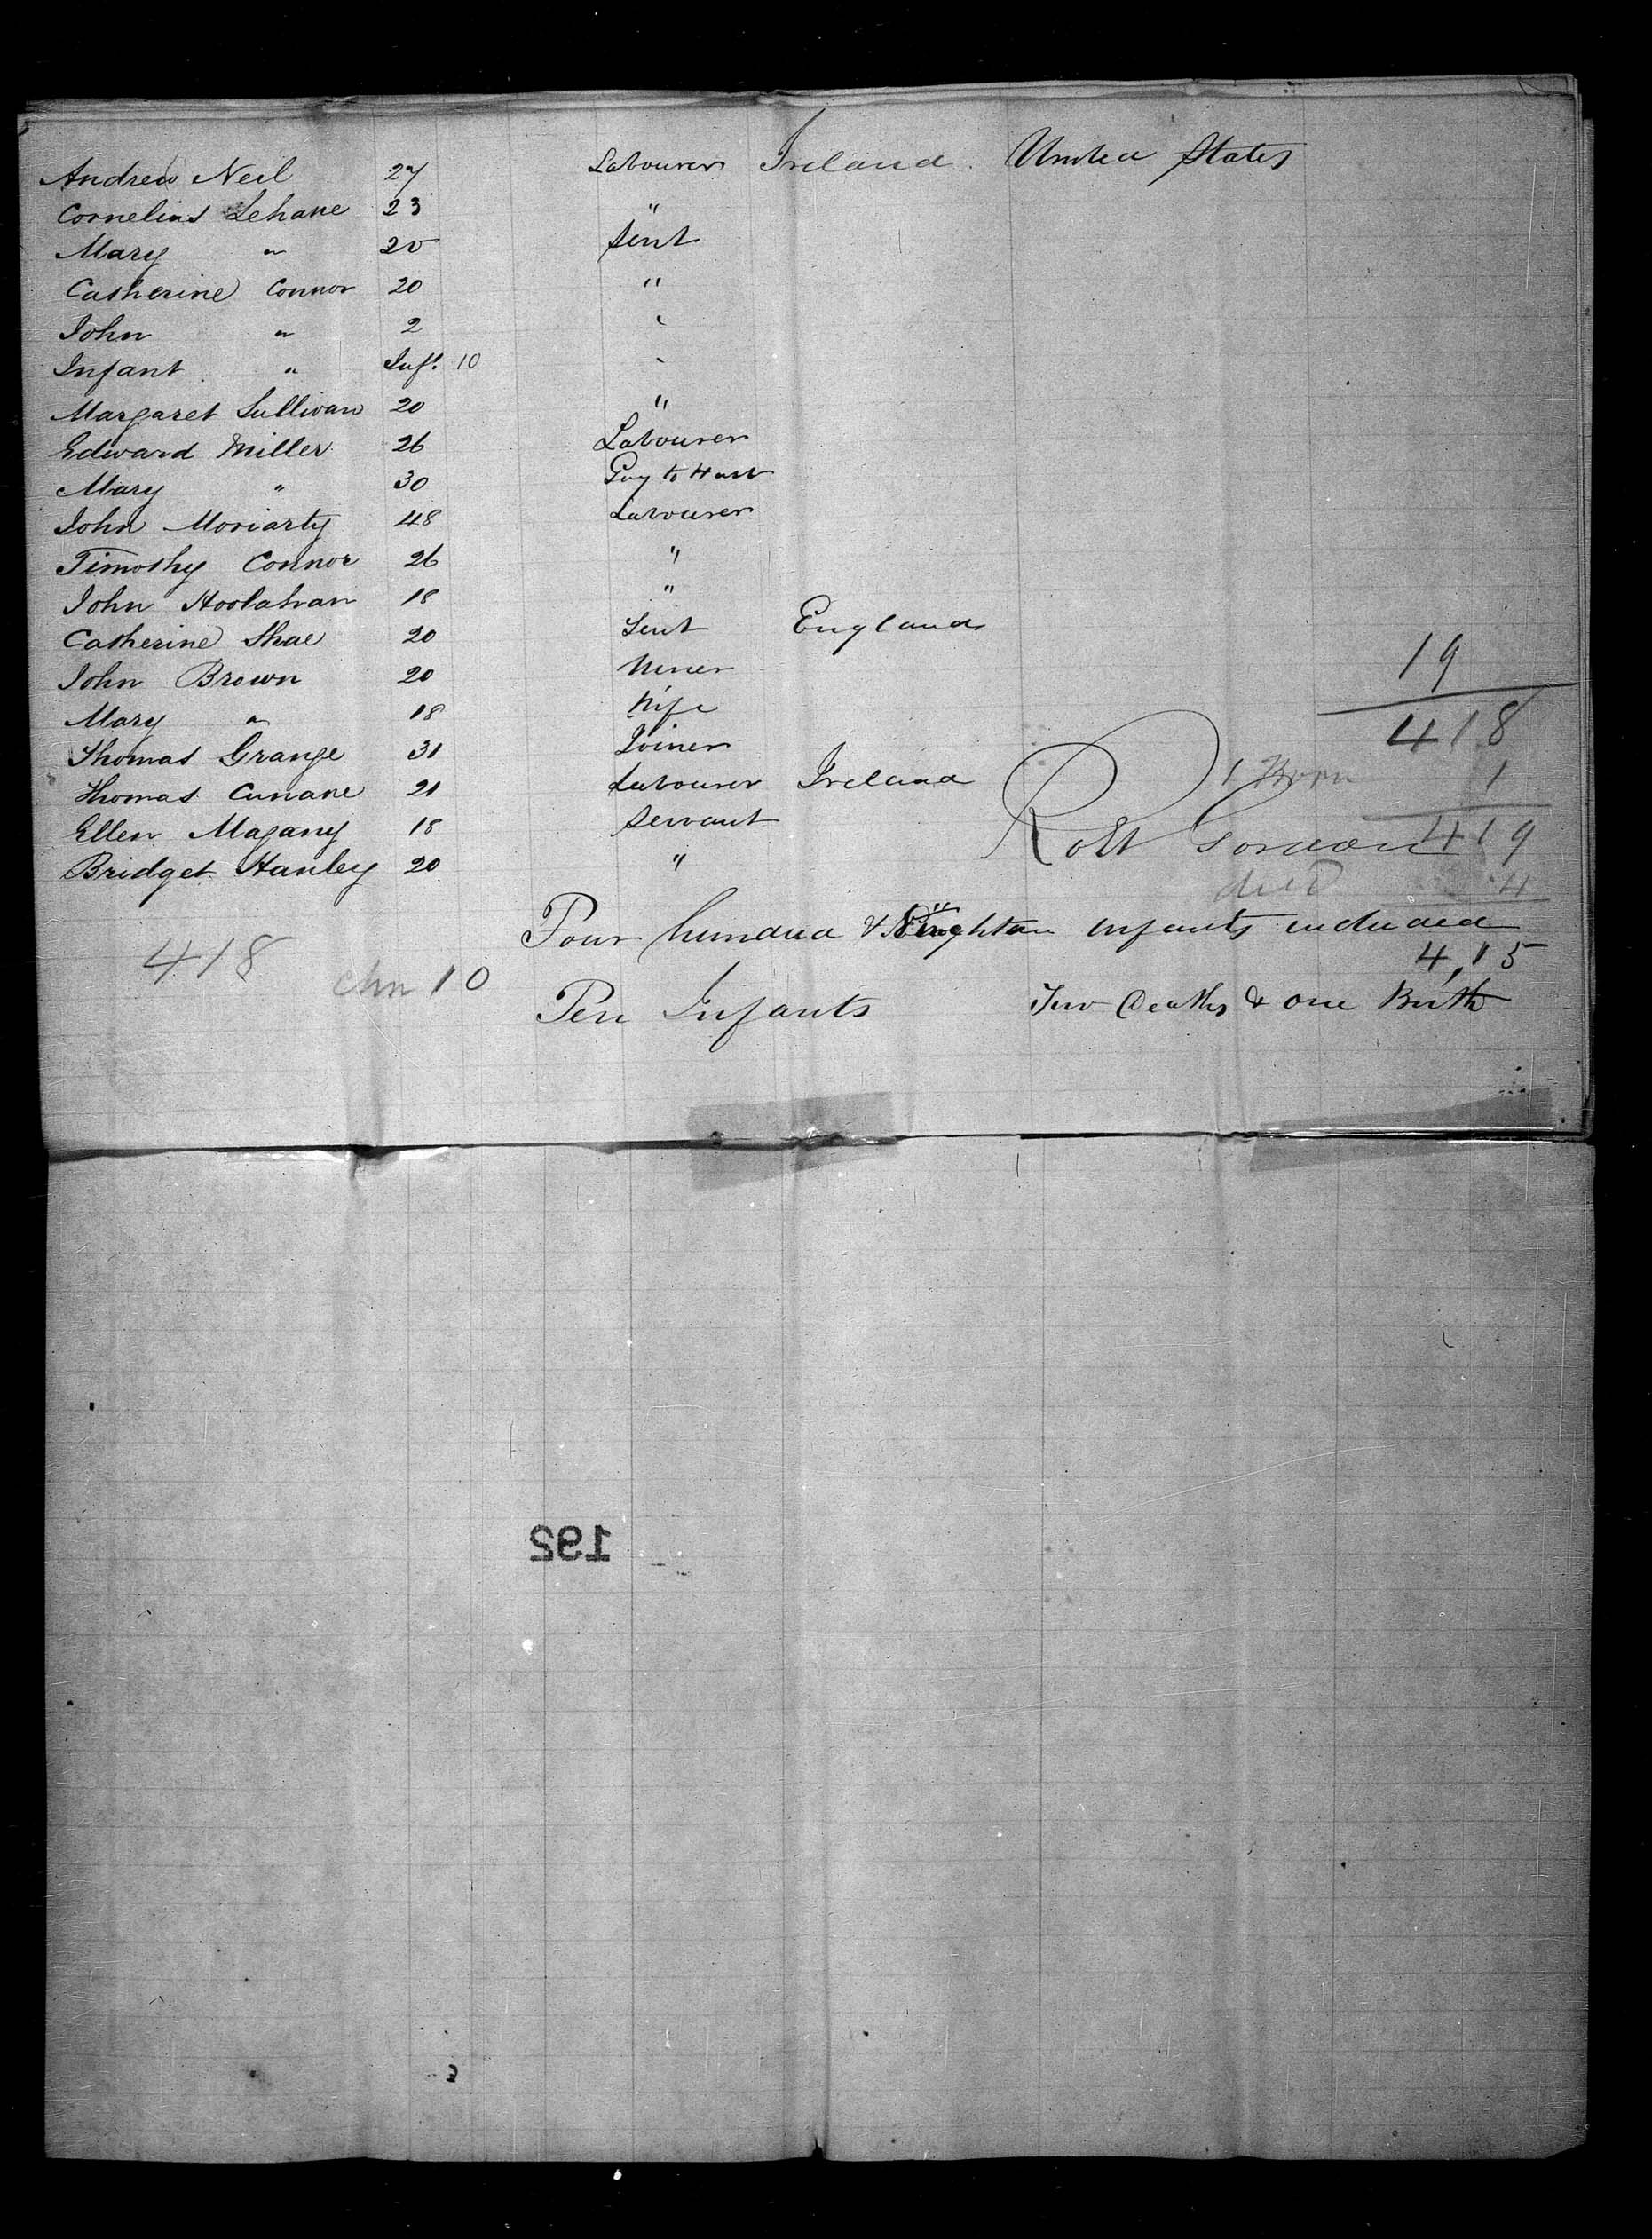 Andrew Neil 27 Labourer Ireland. United States
Cornelius Lehane 23 "
Mary " 20 Sert
Catherine Connor 20 "
John " 2 "
Infant " Inft. 10 "
Margaret Sullivan 20 "
Edward Miller 26 Labourer
Mary " 30 Gng to Husb
John Moriarty 48 Labourer
Timothy Connor 26 "
John Hoolahan 18 "
Catherine Shae 20 Sert England
John Brown 20 Miner 19
Mary " 18 Wife
Thomas Grange 31 Joiner 418
Thomas Cunane 21 Labourer Ireland 1 Born 1
Ellen Magany 18 Servant Robt 419
Bridget Hanley 20 "
died 4
Four hundred & Eighteen Infants included
418 4,15
chn 10
Ten Infants Two Deaths & One Birth
192